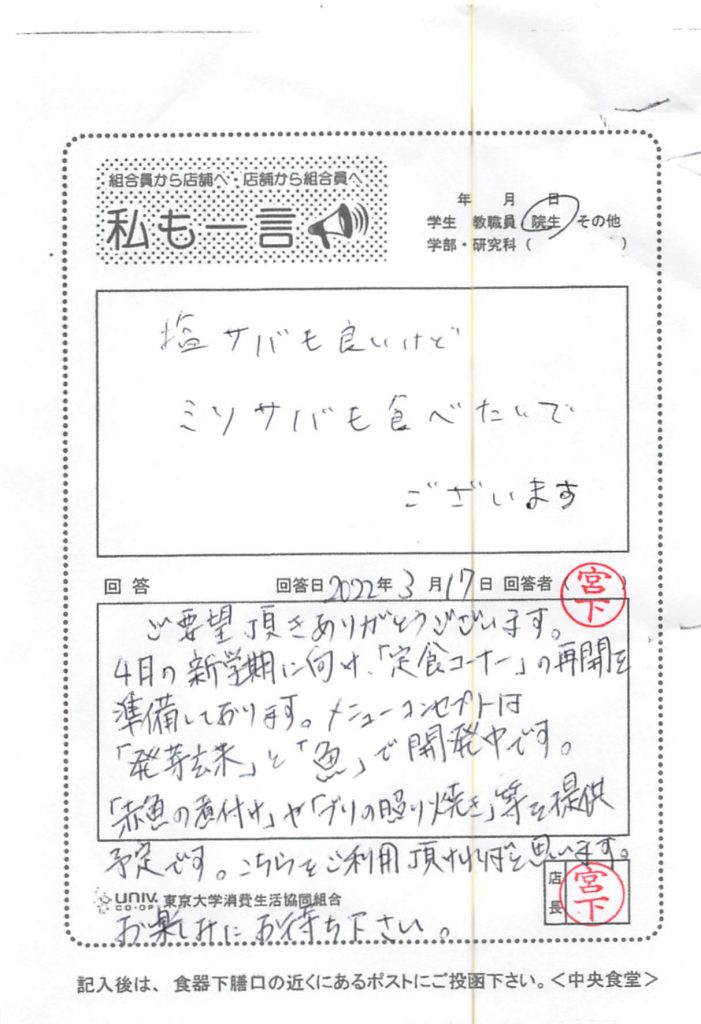 組合員から店舗へ・店舗から組合員へ
私も一言
年 月 日
学生 教職員 院生 その他
学部・研究科 ( )
塩サバも良いけど
ミソサバも食べたいで
ございます
回答 回答日 2022年 3月 17日 回答者 (宮下)
ご要望頂きありがとうございます。
4月の新学期に向け、「定食コーナー」の再開を
準備しております。メニューコンセプトは
「発芽玄米」と「魚」で開発中です。
「赤魚の煮付け」や「ブリの照り焼き」等を提供
予定です。こちらをご利用頂ければと思います。
UNIV. CO-OP 東京大学消費生活協同組合
店長 宮下
お楽しみにお待ち下さい。
記入後は、食器下膳口の近くにあるポストにご投函下さい。<中央食堂>